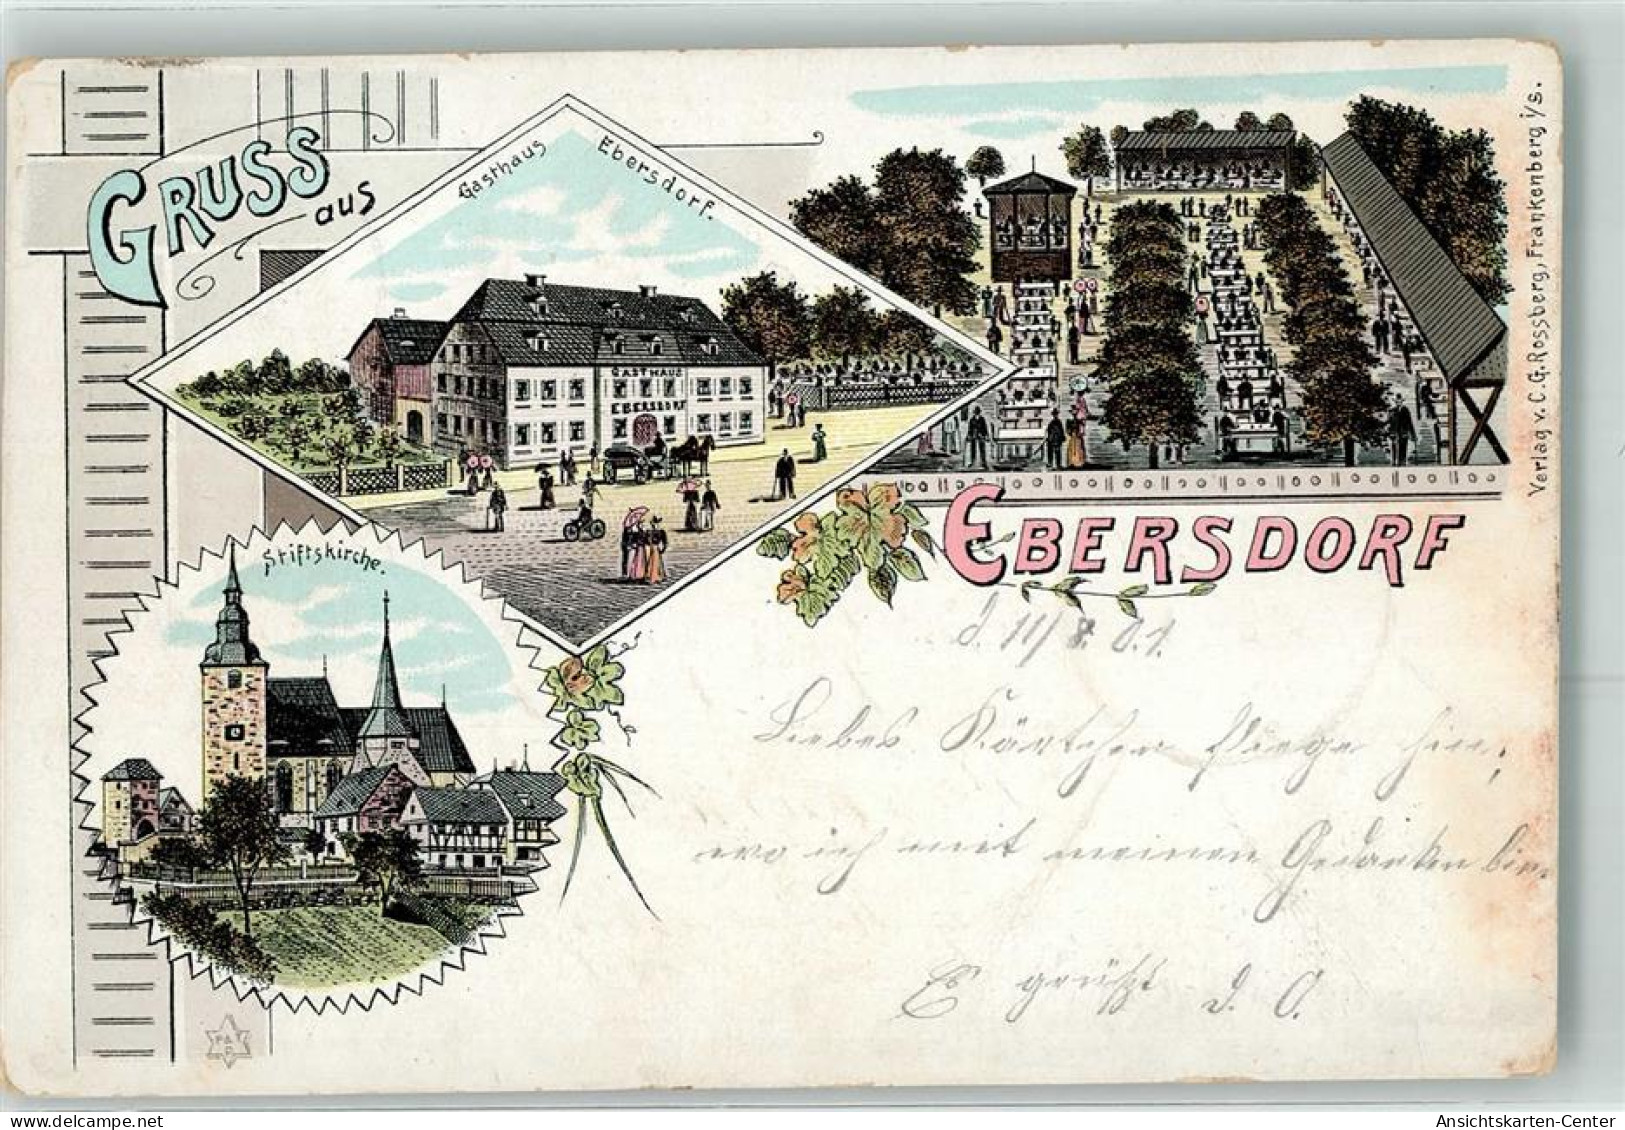 GRUSS
aus
Gasthaus Ebersdorf.
GASTHAUS
EBERSDORF
Stiftskirche.
EBERSDORF
Verlag v. C. G. Rossberg, Frankenberg i/s.
d. 11/8. 01.
Liebes Kärtchen fliege hin,
wo ich mit meinen Gedanken bin.
Es grüßt d. O.
Ansichtskarten-Center